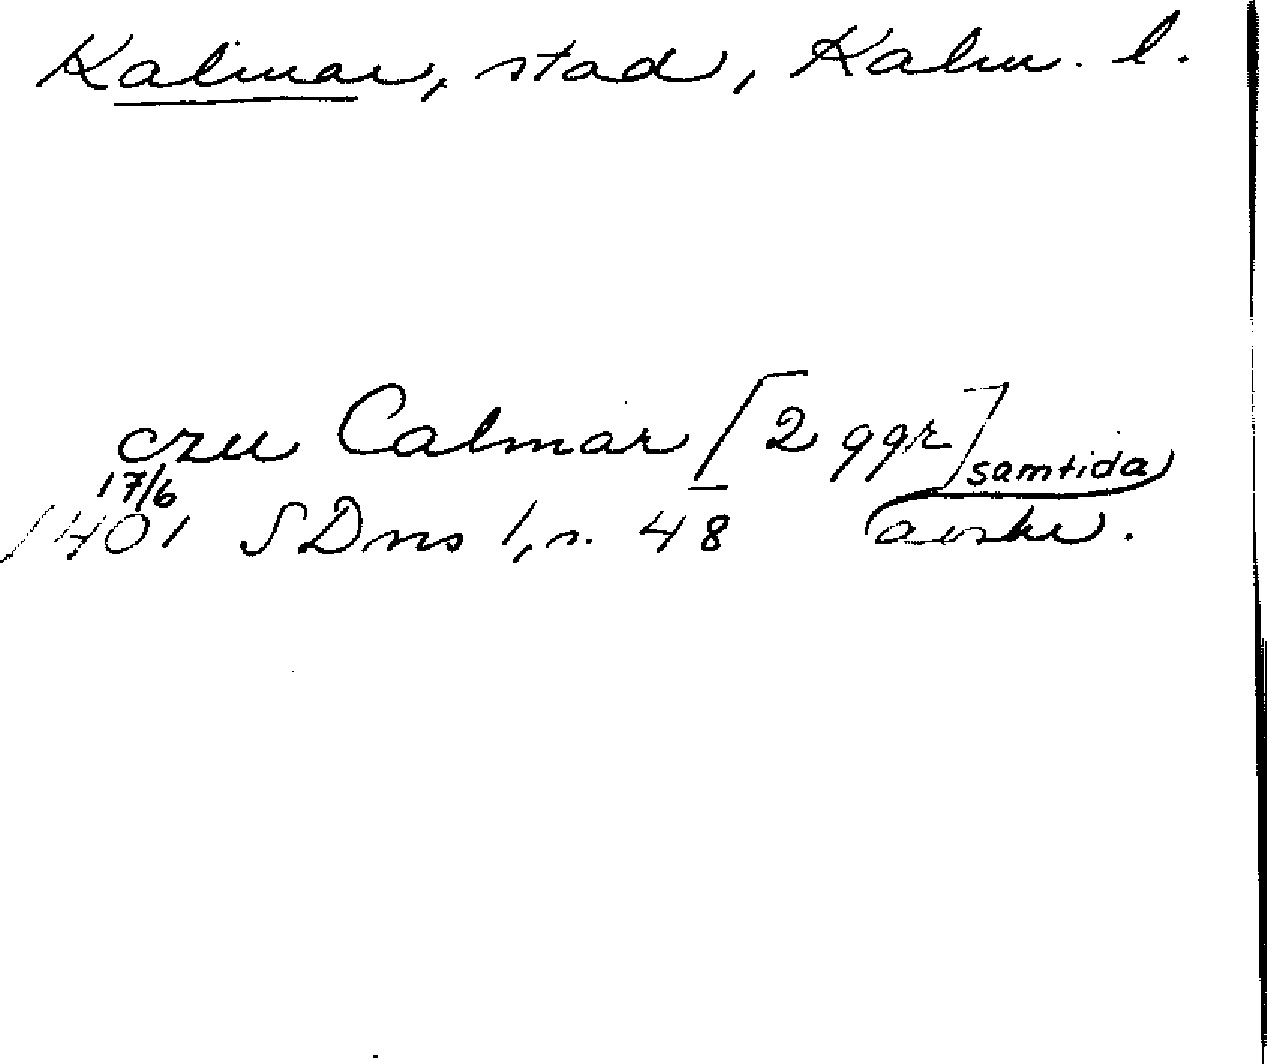 Kalmar, stad, Kalm. l.
czu Calmar [2 ggr]
samtida
17/6
1401 SDns 1, s. 48 avskr.